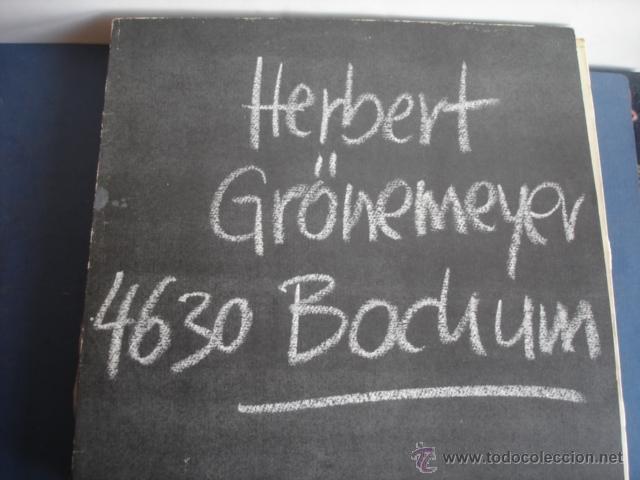 Herbert
Grönemeyer
4630 Bochum
www.todocoleccion.net